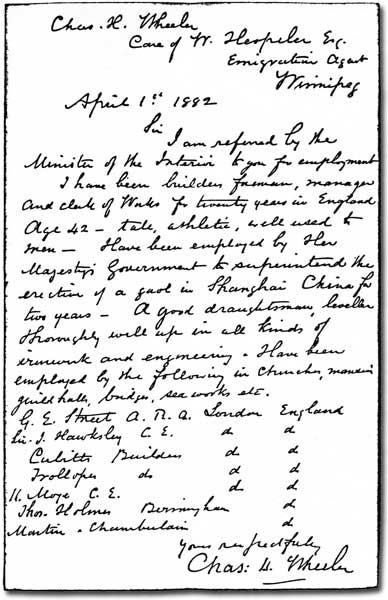 Chas. H. Wheeler
Care of W. Hespeler Esq.
Emigration Agent
Winnipeg
April 1st 1882
Sir
I am referred by the
Minister of the Interior to you for employment
I have been builders foreman, manager
and clerk of Works for twenty years in England
Age 42 – tall, athletic, well used to
men – Have been employed by Her
Majesty's Government to superintend the
erection of a gaol in Shanghai China for
two years – A good draughtsman, leveller
thoroughly well up in all kinds of
ironwork and engineering. Have been
employed by the following in Churches, mansions
guildhalls, bridges, sea works etc.
G. E. Street A. R. A. London England
J. Hawksley C. E. do do
Cubitts Builders do do
Trollopes do do do
C. E. do do
Thos. Holmes Birmingham do
Martin & Chamberlain do
Yours respectfully
Chas: H. Wheeler